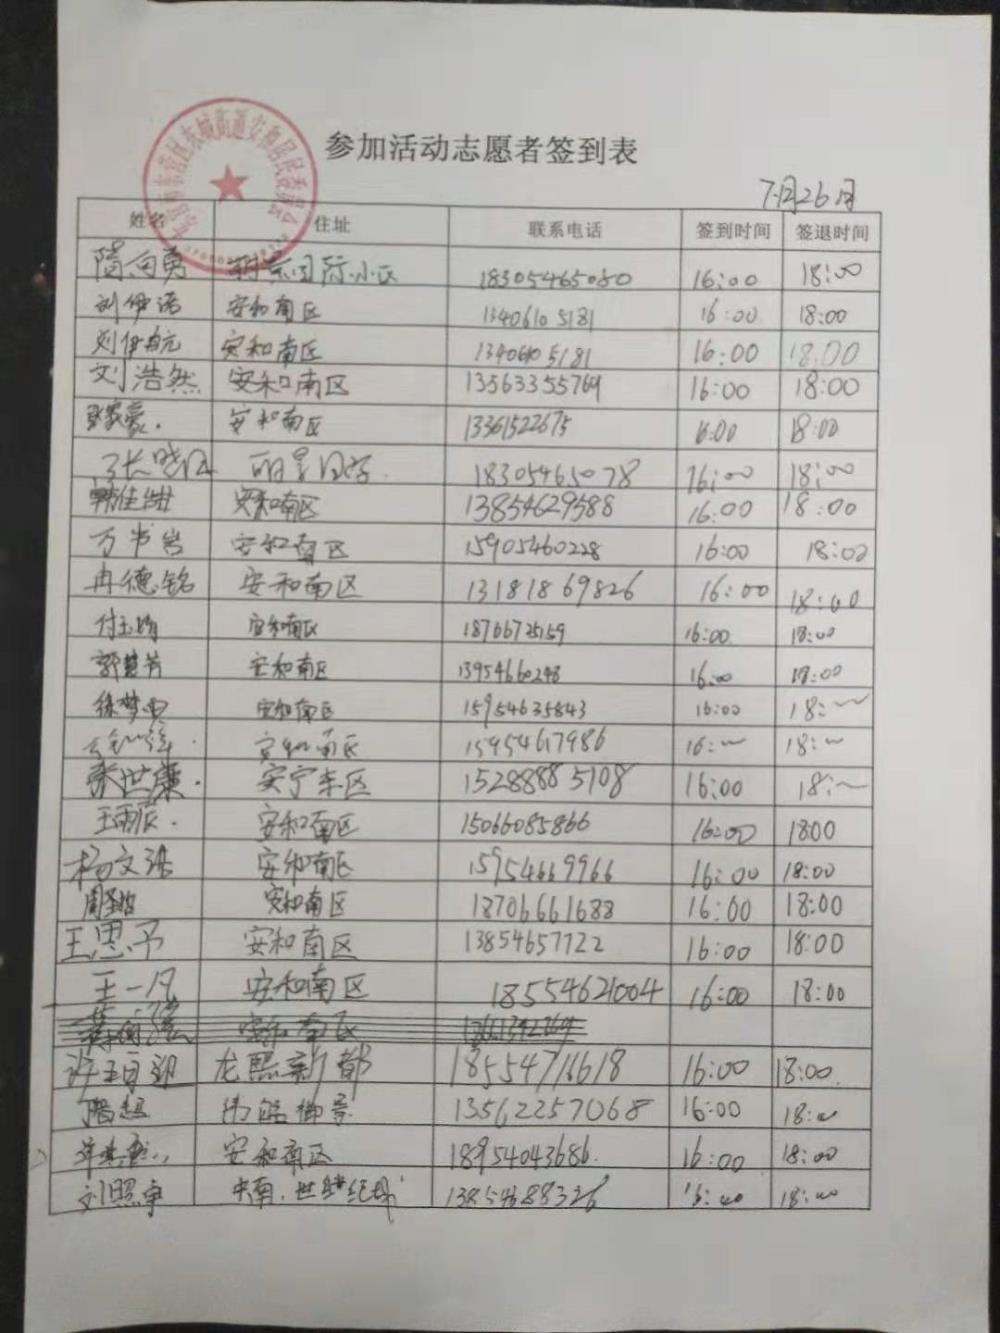 参加活动志愿者签到表
7月26日
姓名 住址 联系电话 签到时间 签退时间
隋向勇 国际小区 18305465080 16:00 18:00
刘伊诺 安和南区 13406105181 16:00 18:00
刘伊航 安和南区 1340605181 16:00 18:00
刘浩然 安和南区 13563355769 16:00 18:00
安和南区 13361522675 16:00 18:00
张晓 18305465078 16:00 18:00
韩佳 安和南区 13854629588 16:00 18:00
万书岩 安和南区 15905460228 16:00 18:00
冉德铭 安和南区 13181869826 16:00 18:00
付玉 安和南区 18766725159 16:00 18:00
郭慧芳 安和南区 13954660298 16:00 18:00
徐梦 安和南区 15954635843 16:00 18:
安和南区 15954617986 16: 18:
张世廉 安宁东区 15288885108 16:00 18:
王雨辰 安和南区 15066085866 16:00 18:00
杨文浩 安和南区 15954669966 16:00 18:00
周圣皓 安和南区 18706661688 16:00 18:00
王思予 安和南区 13854657722 16:00 18:00
王一凡 安和南区 18554621004 16:00 18:00
安和南区
许 龙熙新都 18554716618 16:00 18:00
御景 13562257068 16:00 18:
安和南区 18954043686 16:00 18:00
刘照 13854688326 18: